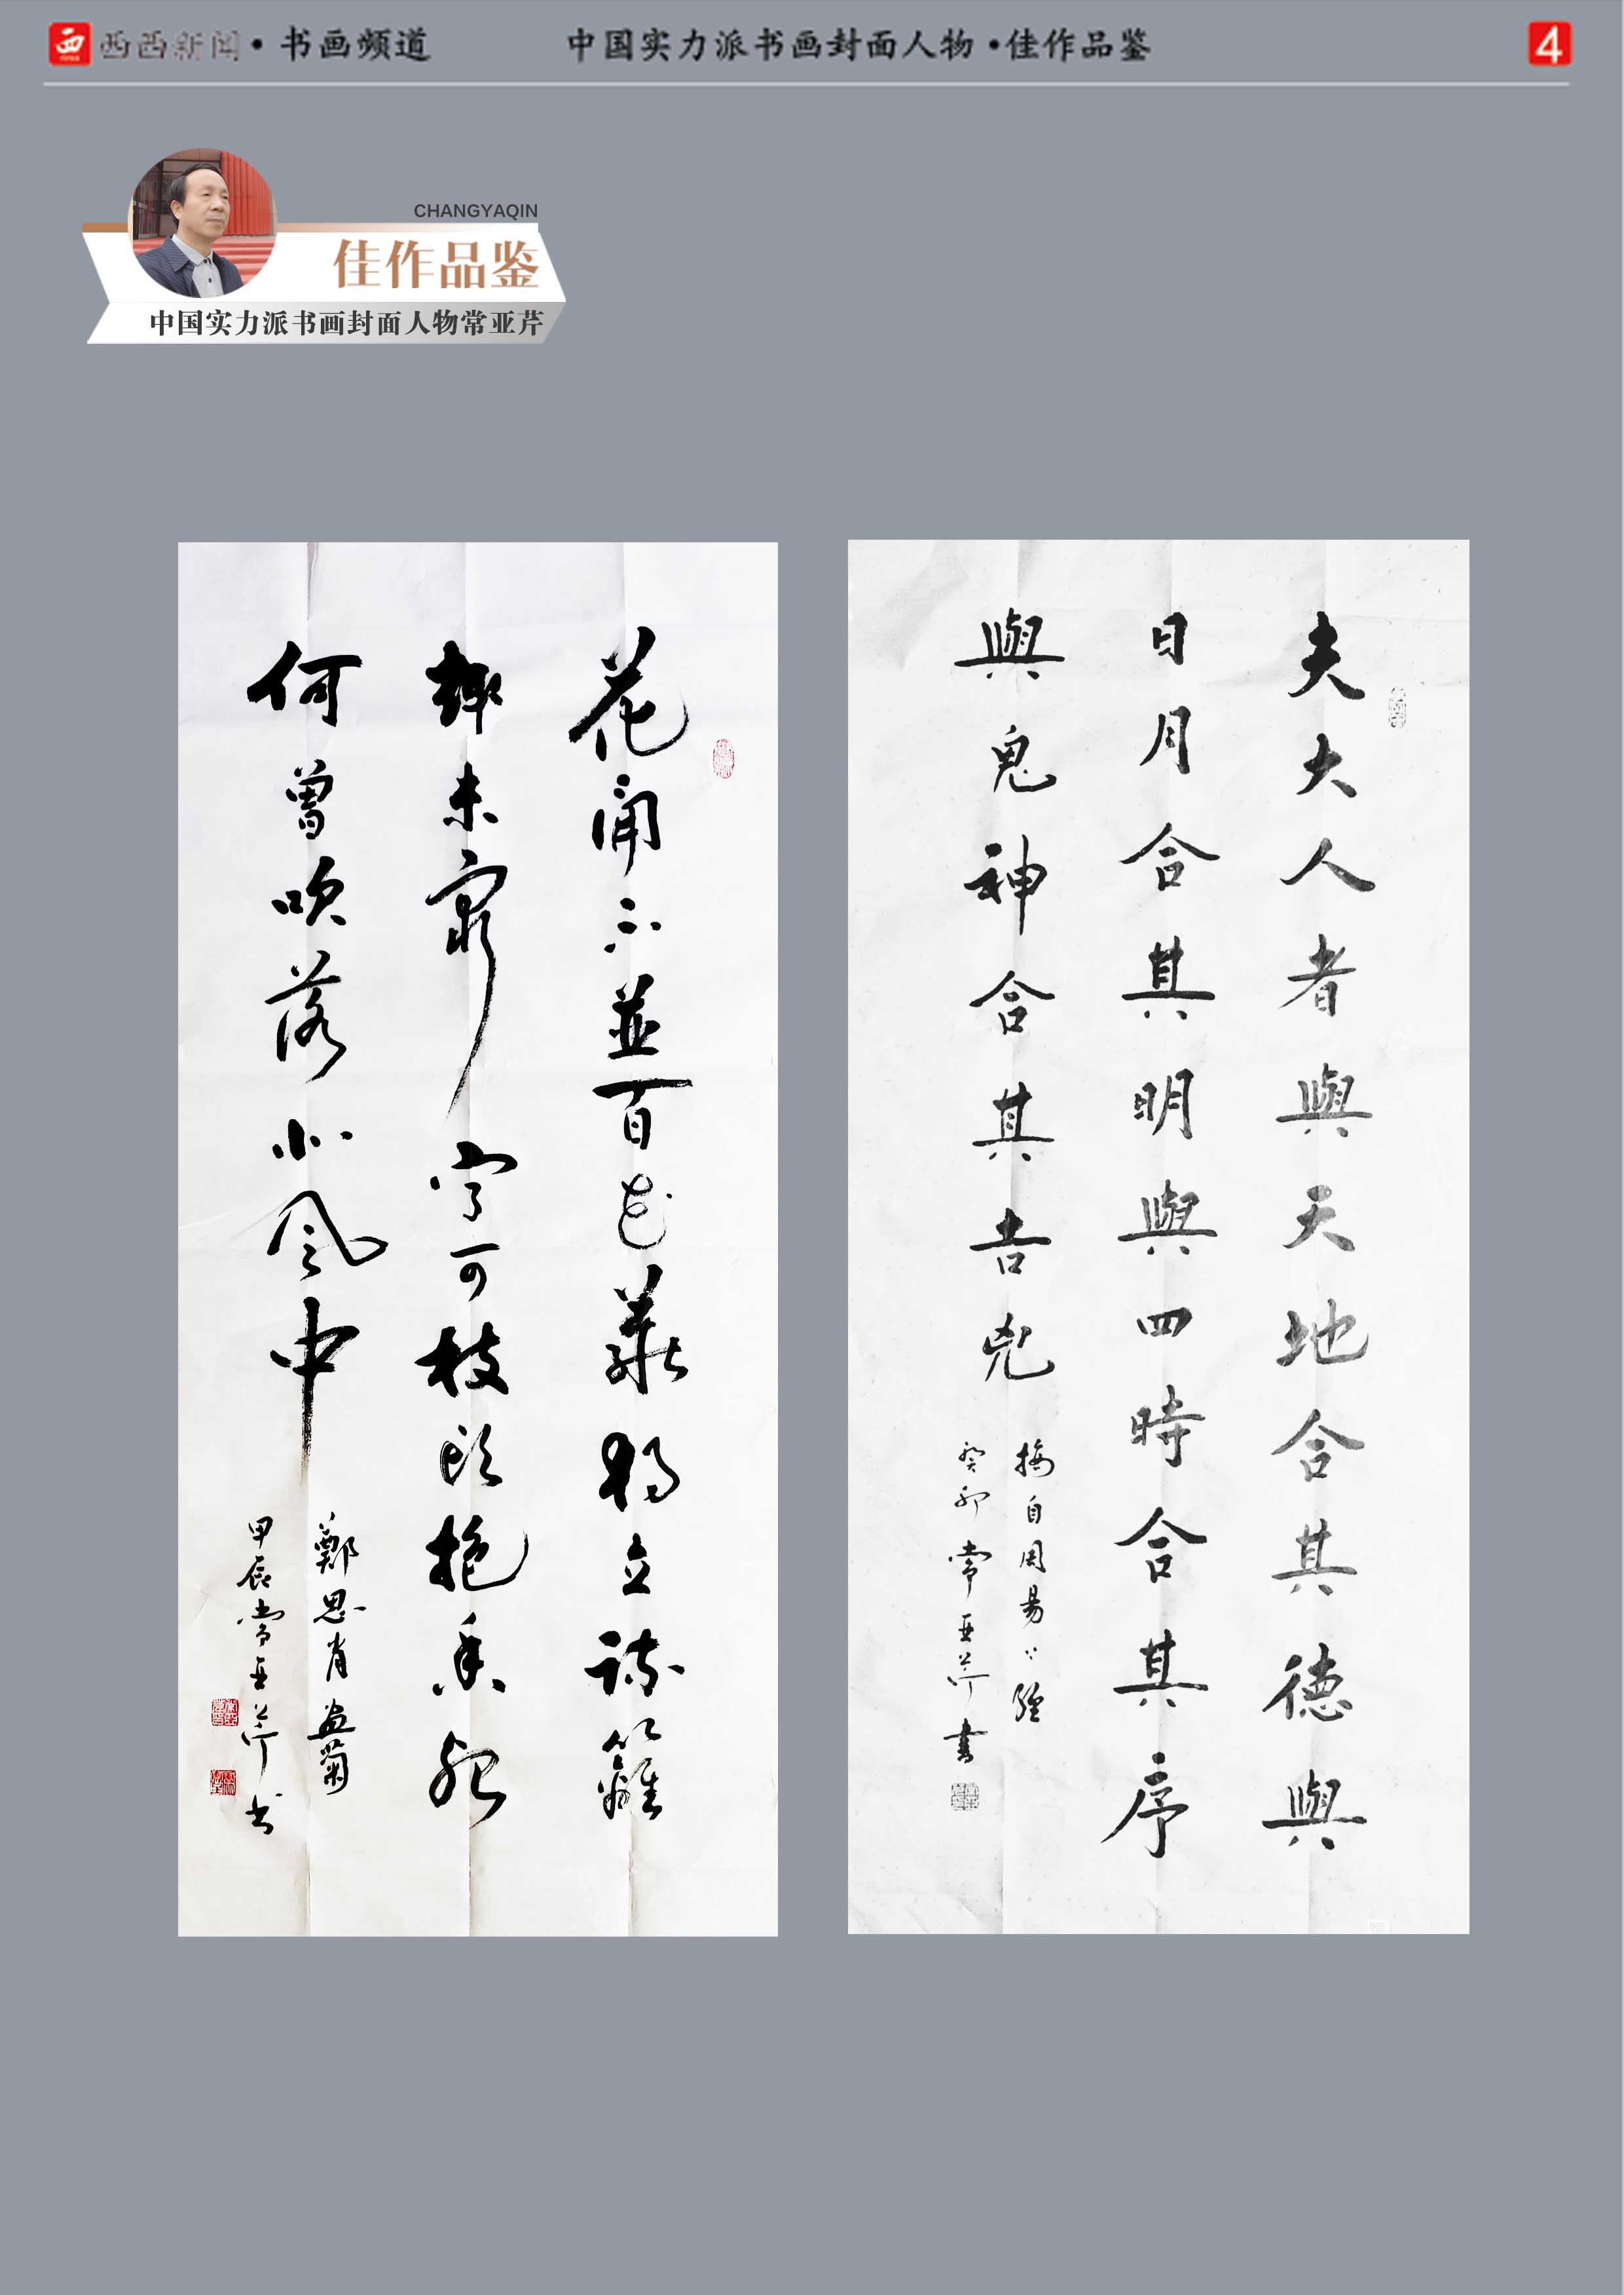 西
西西新闻·书画频道
中国实力派书画封面人物·佳作品鉴
4
CHANGYAQIN
佳作品鉴
中国实力派书画封面人物常亚芹
花開不並百花叢獨立疏籬
趣未窮寧可枝頭抱香死
何曾吹落北風中
鄭思肖画菊
甲辰常亚芹书
夫大人者與天地合其德與
日月合其明與四時合其序
與鬼神合其吉兇
摘自周易易經
癸卯常亚芹書